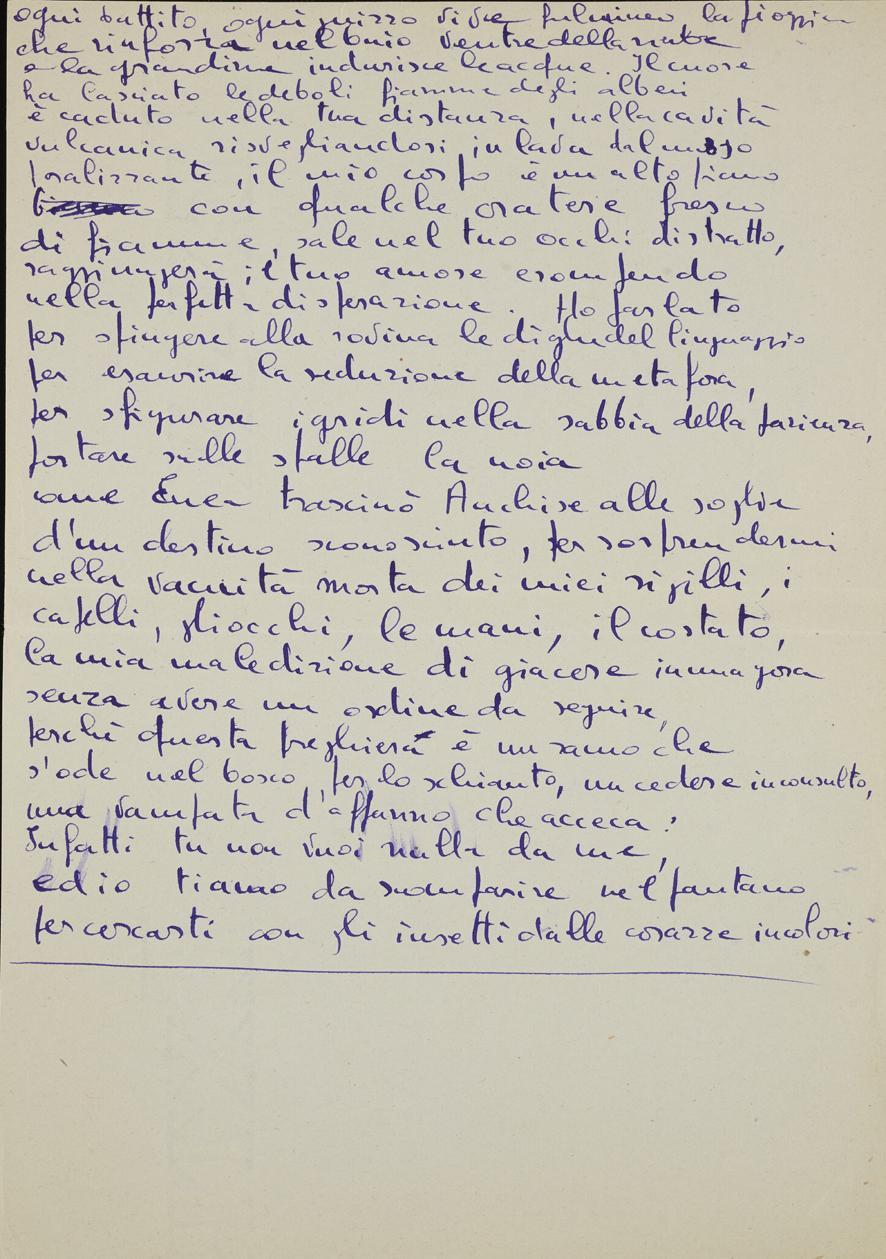 ogni battito, ogni guizzo vivae fulmineo, la pioggia
che rinforza nel buio ventre della nube
e la grandine indurisce le acque. Il cuore
ha lasciato le deboli fiamme degli alberi
è caduto nella tua distanza, nella cavità
vulcanica risvegliandosi in lava dal
paralizzante, il mio corpo è un alto piano
con qualche cratere fresco
di fiamme, sale nel tuo occhi distratto,
raggiungerà il tuo amore erompendo
nella perfetta disperazione. Ho parlato
per spingere alla rovina le dighe del linguaggio
per esaurire la seduzione della metafora,
per sfigurare i gridi nella sabbia della pazienza,
portare sulle spalle la noia
come Enea trascinò Anchise alle soglie
d'un destino sconosciuto, per sorprendermi
nella vacuità morta dei miei sigilli, i
capelli, gli occhi, le mani, il costato,
la mia maledizione di giacere in una gora
senza avere un ordine da seguire,
perchè questa preghiera è un ramo che
s'ode nel bosco per lo schianto, un cedere inconsulto,
una vampata d'affanno che acceca:
Infatti tu non vuoi nulla da me,
ed io ti amo da scomparire nel pantano
per cercarti con gli insetti dalle corazze incolori